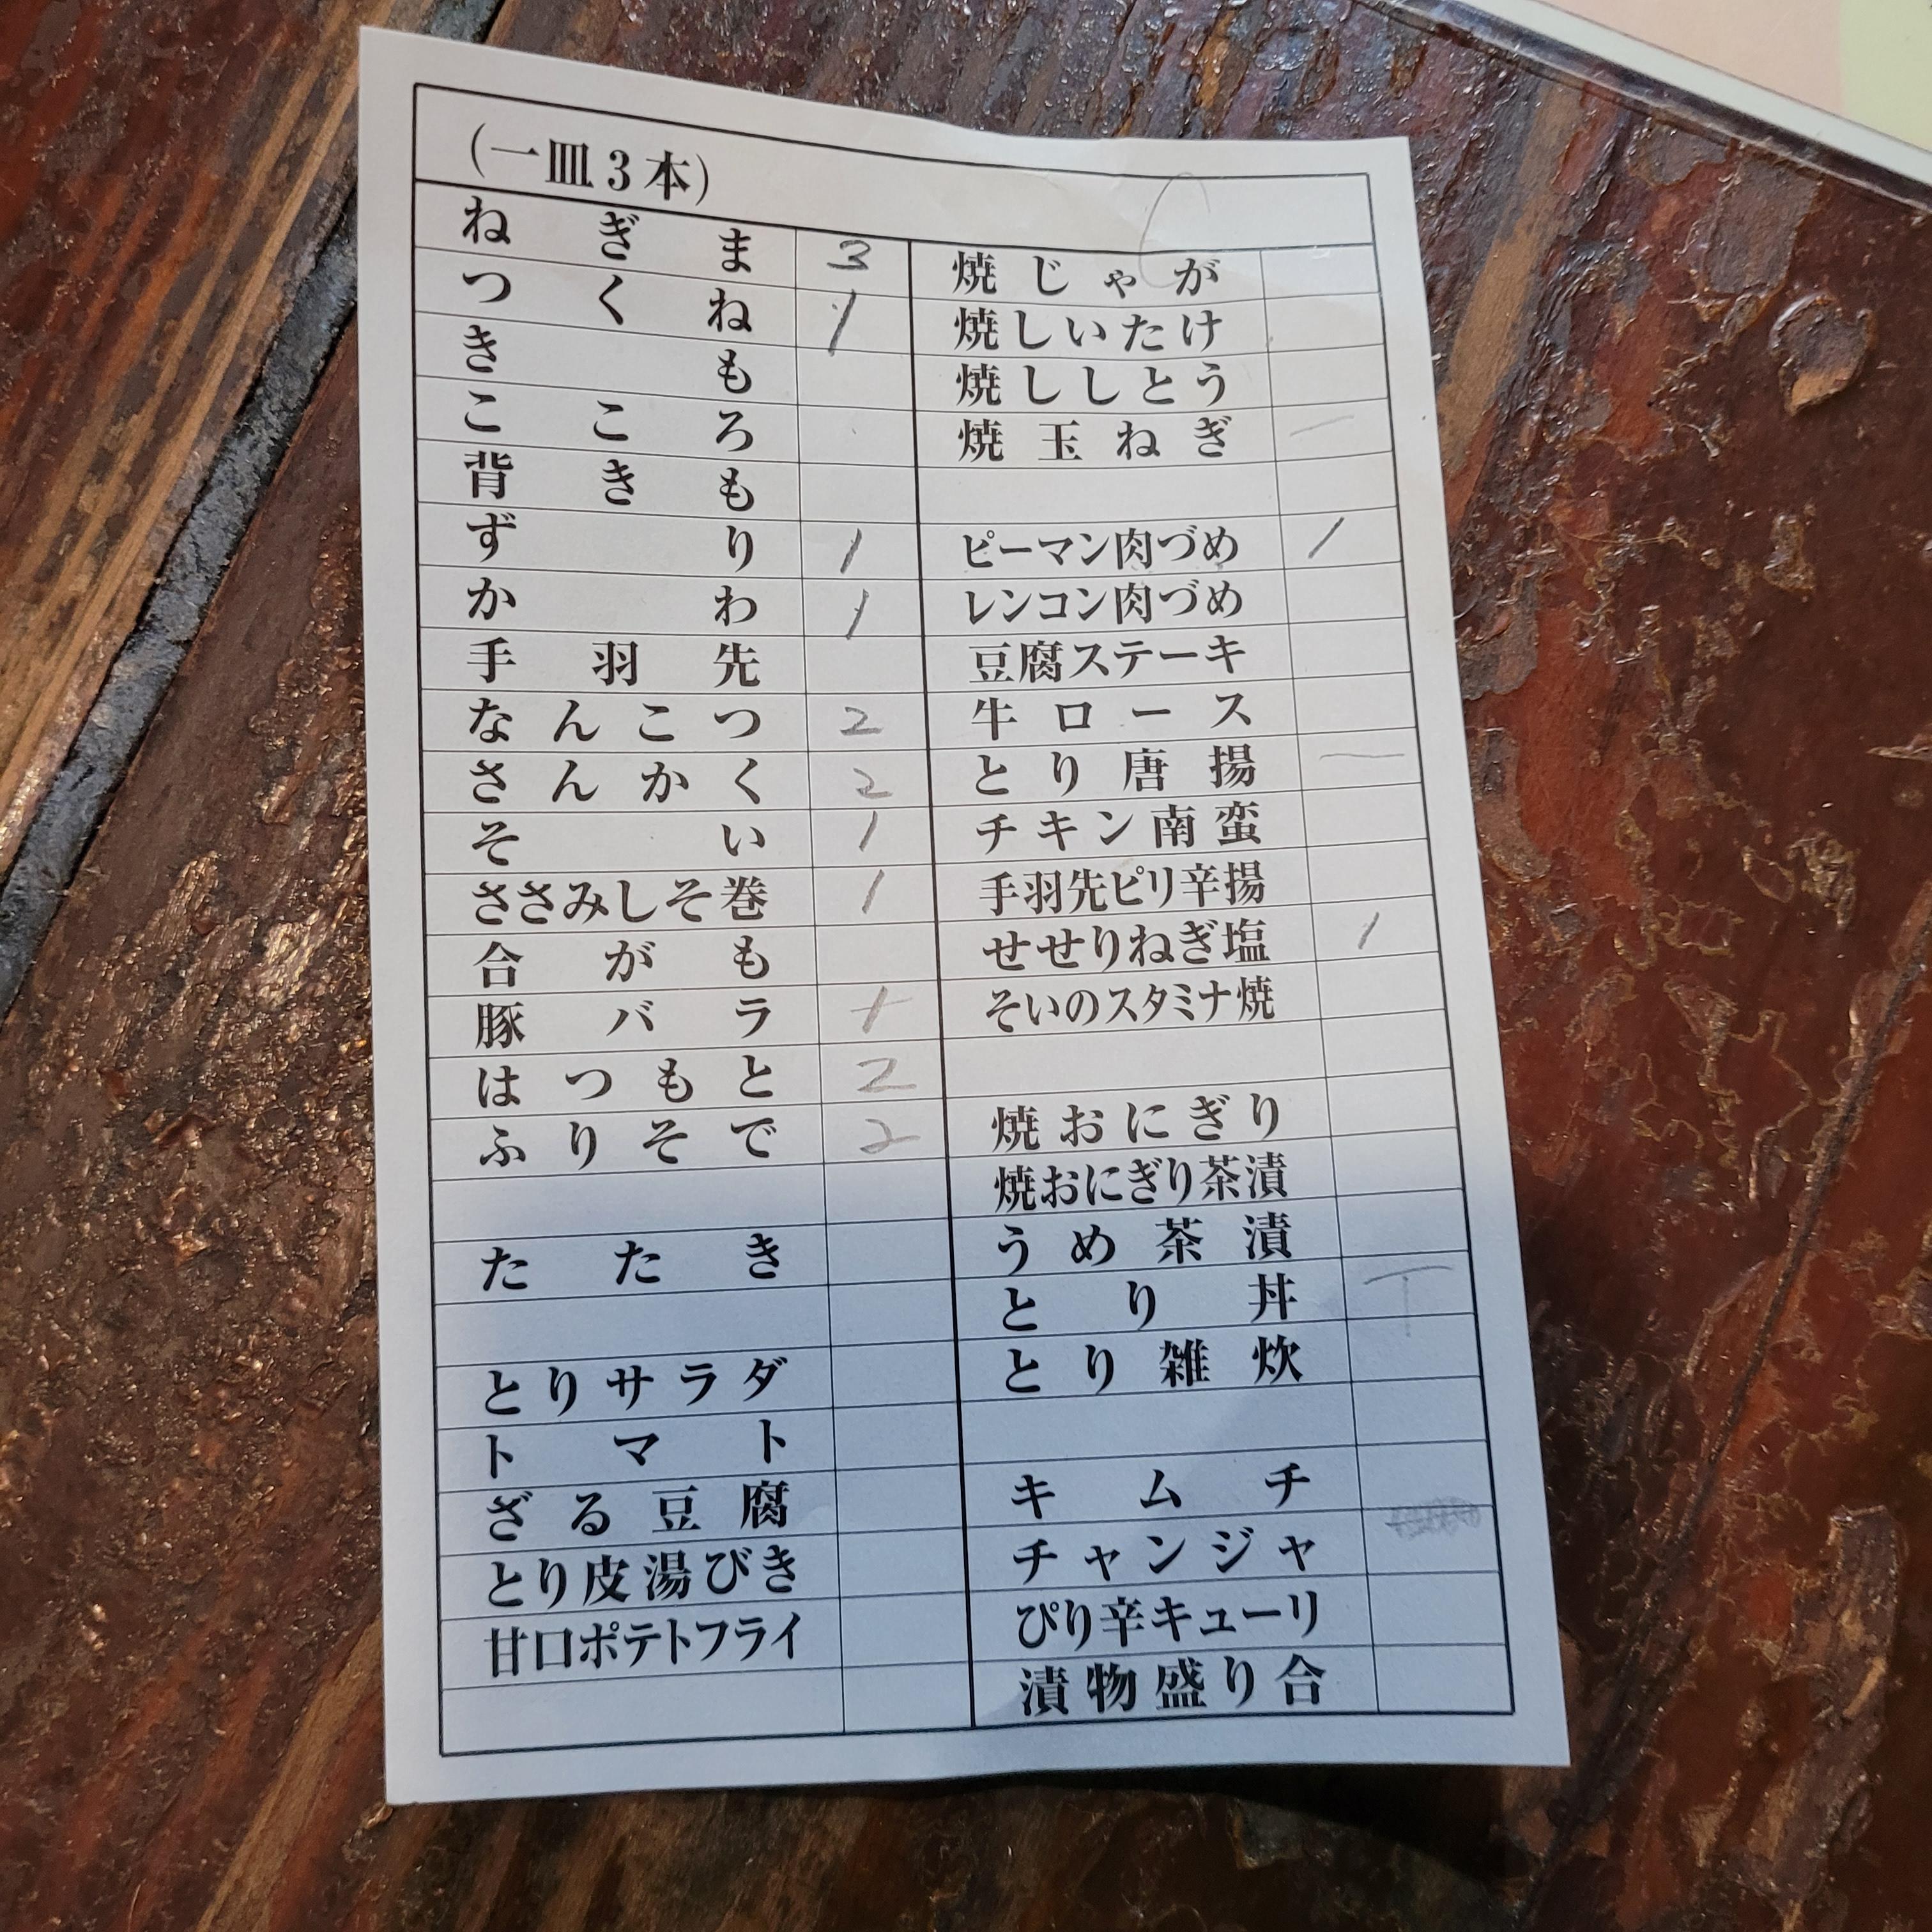 (一皿3本)
ねぎま 3
つくね 1
きも
こころ
背きも
ずり 1
かわ 1
手羽先
なんこつ 2
さんかく 2
そい 1
ささみしそ巻 1
合がも
豚バラ
はつもと 2
ふりそで 2
たたき
とりサラダ
トマト
ざる豆腐
とり皮湯びき
甘口ポテトフライ
焼じゃが
焼しいたけ
焼ししとう
焼玉ねぎ 一
ピーマン肉づめ 1
レンコン肉づめ
豆腐ステーキ
牛ロース
とり唐揚 一
チキン南蛮
手羽先ピリ辛揚
せせりねぎ塩 1
そいのスタミナ焼
焼おにぎり
焼おにぎり茶漬
うめ茶漬
とり丼
とり雑炊
キムチ
チャンジャ
ぴり辛キューリ
漬物盛り合